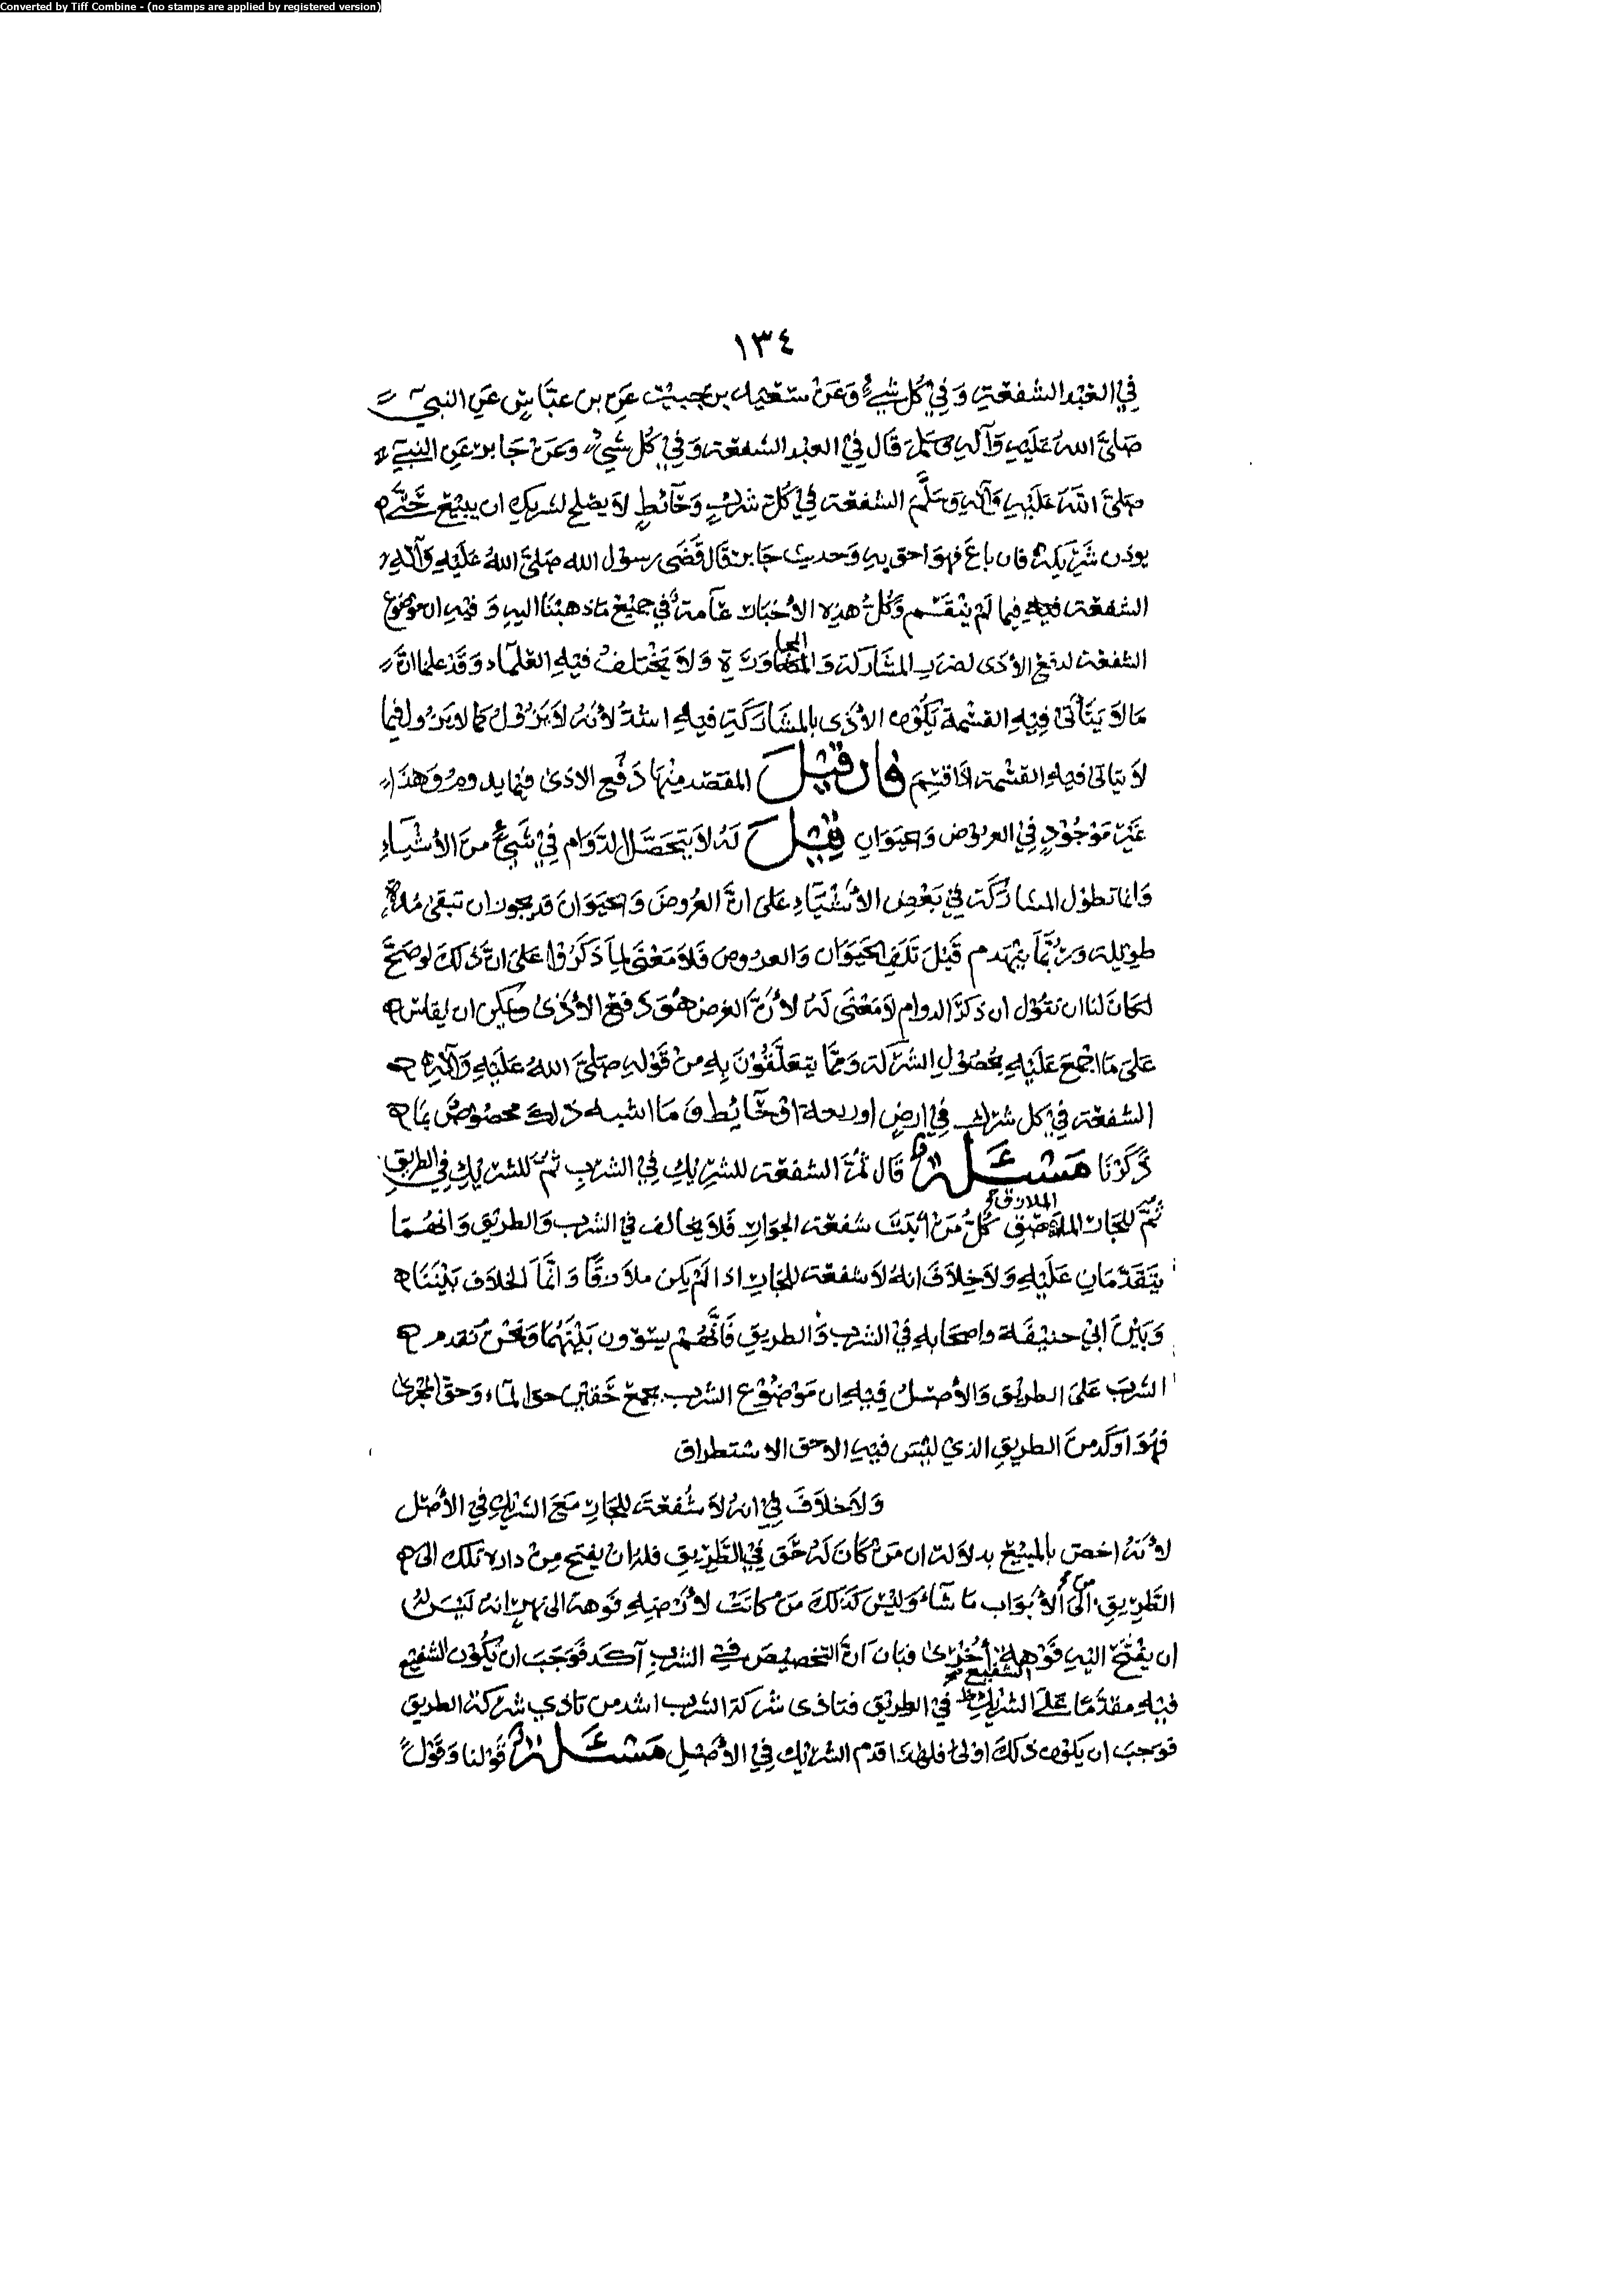 Converted by Tiff Combine - (no stamps are applied by registered version)
١٣٤
في العبد الشفعة وفي كل شيء وعن سعيد بن جبير عن بن عباس عن النبي
صلى الله عليه وآله وسلم قال في العبد الشفعة وفي كل شيء وعن جابر عن النبي
صلى الله عليه وآله وسلم الشفعة في كل شرك وحائط لا يصلح لشريك ان يبيع حتى
يوذن شريكه فان باع فهو احق به وحديث جابر قال قضى رسول الله صلى الله عليه وآله
الشفعة فيما لم ينقسم وكل هذه الأخبار عامة في جميع ما ذهبنا اليه وفيه ان موضوع
الشفعة لدفع الأذى لضرر المشاركة والمجاورة ولا يختلف فيه العلماء وقد علمنا ان
ما لا يتأتى فيه القسمة يكون الأذى بالمشاركة فيه اشد لأنه لا يزول كما لا يزول فيما
لا يتاتى فيه القسمة اذا قسم فان قيل المقصد منها دفع الاذى فيما يدوم وهذا
غير موجود في العروض والحيوان قيل له لا يتحصل الدوام في شيء من الأشياء
وانما تطول المشاركة في بعض الأشياء على ان العروض والحيوان قد يجوز ان تبقى مدة
طويلة وربما ينهدم قبل تلف الحيوان والعروض فلا معنى لما ذكروا على ان ذلك لو صح
لكان لنا ان نقول ان ذكر الدوام لا معنى له لأن الغرض هو دفع الأذى ويمكن ان يقاس
على ما اجمع عليه بحصول الشركة ومما يتعلقون به من قوله صلى الله عليه وآله
الشفعة في كل شرك في ارض او ربعة او حائط وما اشبه ذلك مخصوص بما
ذكرنا مسئلة قال ثم الشفعة للشريك في الشرب ثم للشريك في الطريق
الملازق
ثم للجار كل من أثبت شفعة الجوار فلا يخالف في الشرب والطريق وانهما
يتقدمان عليه ولا خلاف انه لا شفعة للجار اذا لم يكن ملازقا وانما الخلاف بيننا
وبين ابي حنيفة واصحابه في الشرب والطريق فانهم يسوون بينهما ونحن نقدم
الشرب على الطريق والأصل فيه ان موضوع الشرب يجمع حقين حق الماء وحق المجرى
فهو اوكد من الطريق الذي ليس فيه الا حق الاستطراق
ولا خلاف في انه لا شفعة للجار مع الشريك في الأصل
لأنه اخص بالمبيع بدلالة ان من كان له حق في الطريق فله ان يفتح من داره تلك الى
الطريق من الأبواب ما شاء وليس كذلك من كانت لأرضه فوهة الى نهر انه ليس له
ان يفتح اليه فوهة أخرى فبان ان التخصيص في الشرب آكد فوجب ان يكون الشفيع
الشفيع
فيه مقدما على الشريك في الطريق فتاذى شركة الشرب اشد من تاذي شركة الطريق
فوجب ان يكون ذلك اولى فلهذا قدم الشريك في الأصل مسئلة قولنا وقول